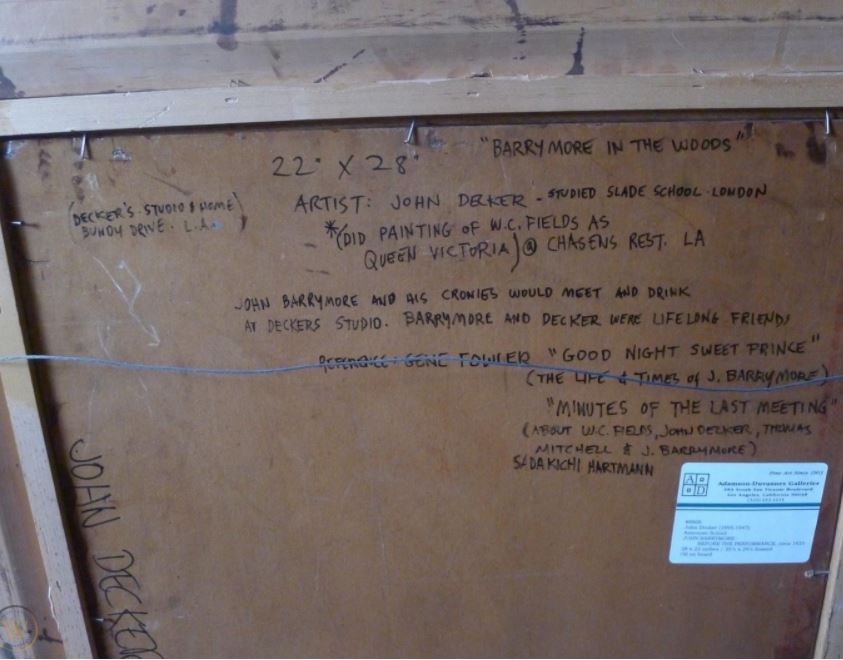 "BARRYMORE IN THE WOODS"
22" X 28"
ARTIST: JOHN DECKER - STUDIED SLADE SCHOOL - LONDON
(DECKER'S STUDIO & HOME)
BUNDY DRIVE. L.A.
*(DID PAINTING OF W.C. FIELDS AS
QUEEN VICTORIA) @ CHASENS REST. LA
JOHN BARRYMORE AND HIS CRONIES WOULD MEET AND DRINK
AT DECKERS STUDIO. BARRYMORE AND DECKER WERE LIFELONG FRIENDS
REFERENCE: GENE FOWLER "GOOD NIGHT SWEET PRINCE"
(THE LIFE & TIMES of J. BARRYMORE)
"MINUTES OF THE LAST MEETING"
(ABOUT W.C. FIELDS, JOHN DECKER, THOMAS
MITCHELL & J. BARRYMORE)
SADAKICHI HARTMANN
JOHN DECKER
A D
Adamson-Duvannes Galleries
Los Angeles, California
John Decker (1895-1947)
American School
JOHN BARRYMORE
BEFORE THE PERFORMANCE, circa
Oil on board